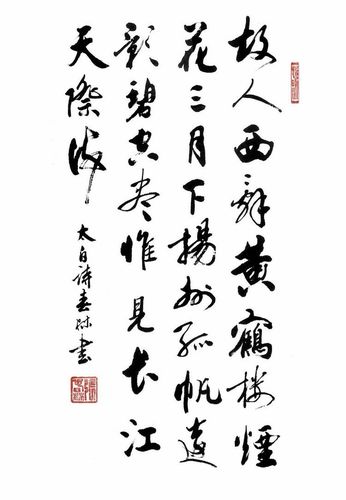 故人西辭黄鶴樓煙
花三月下揚州孤帆遠
影碧空盡惟見長江
天際流
太白詩春書